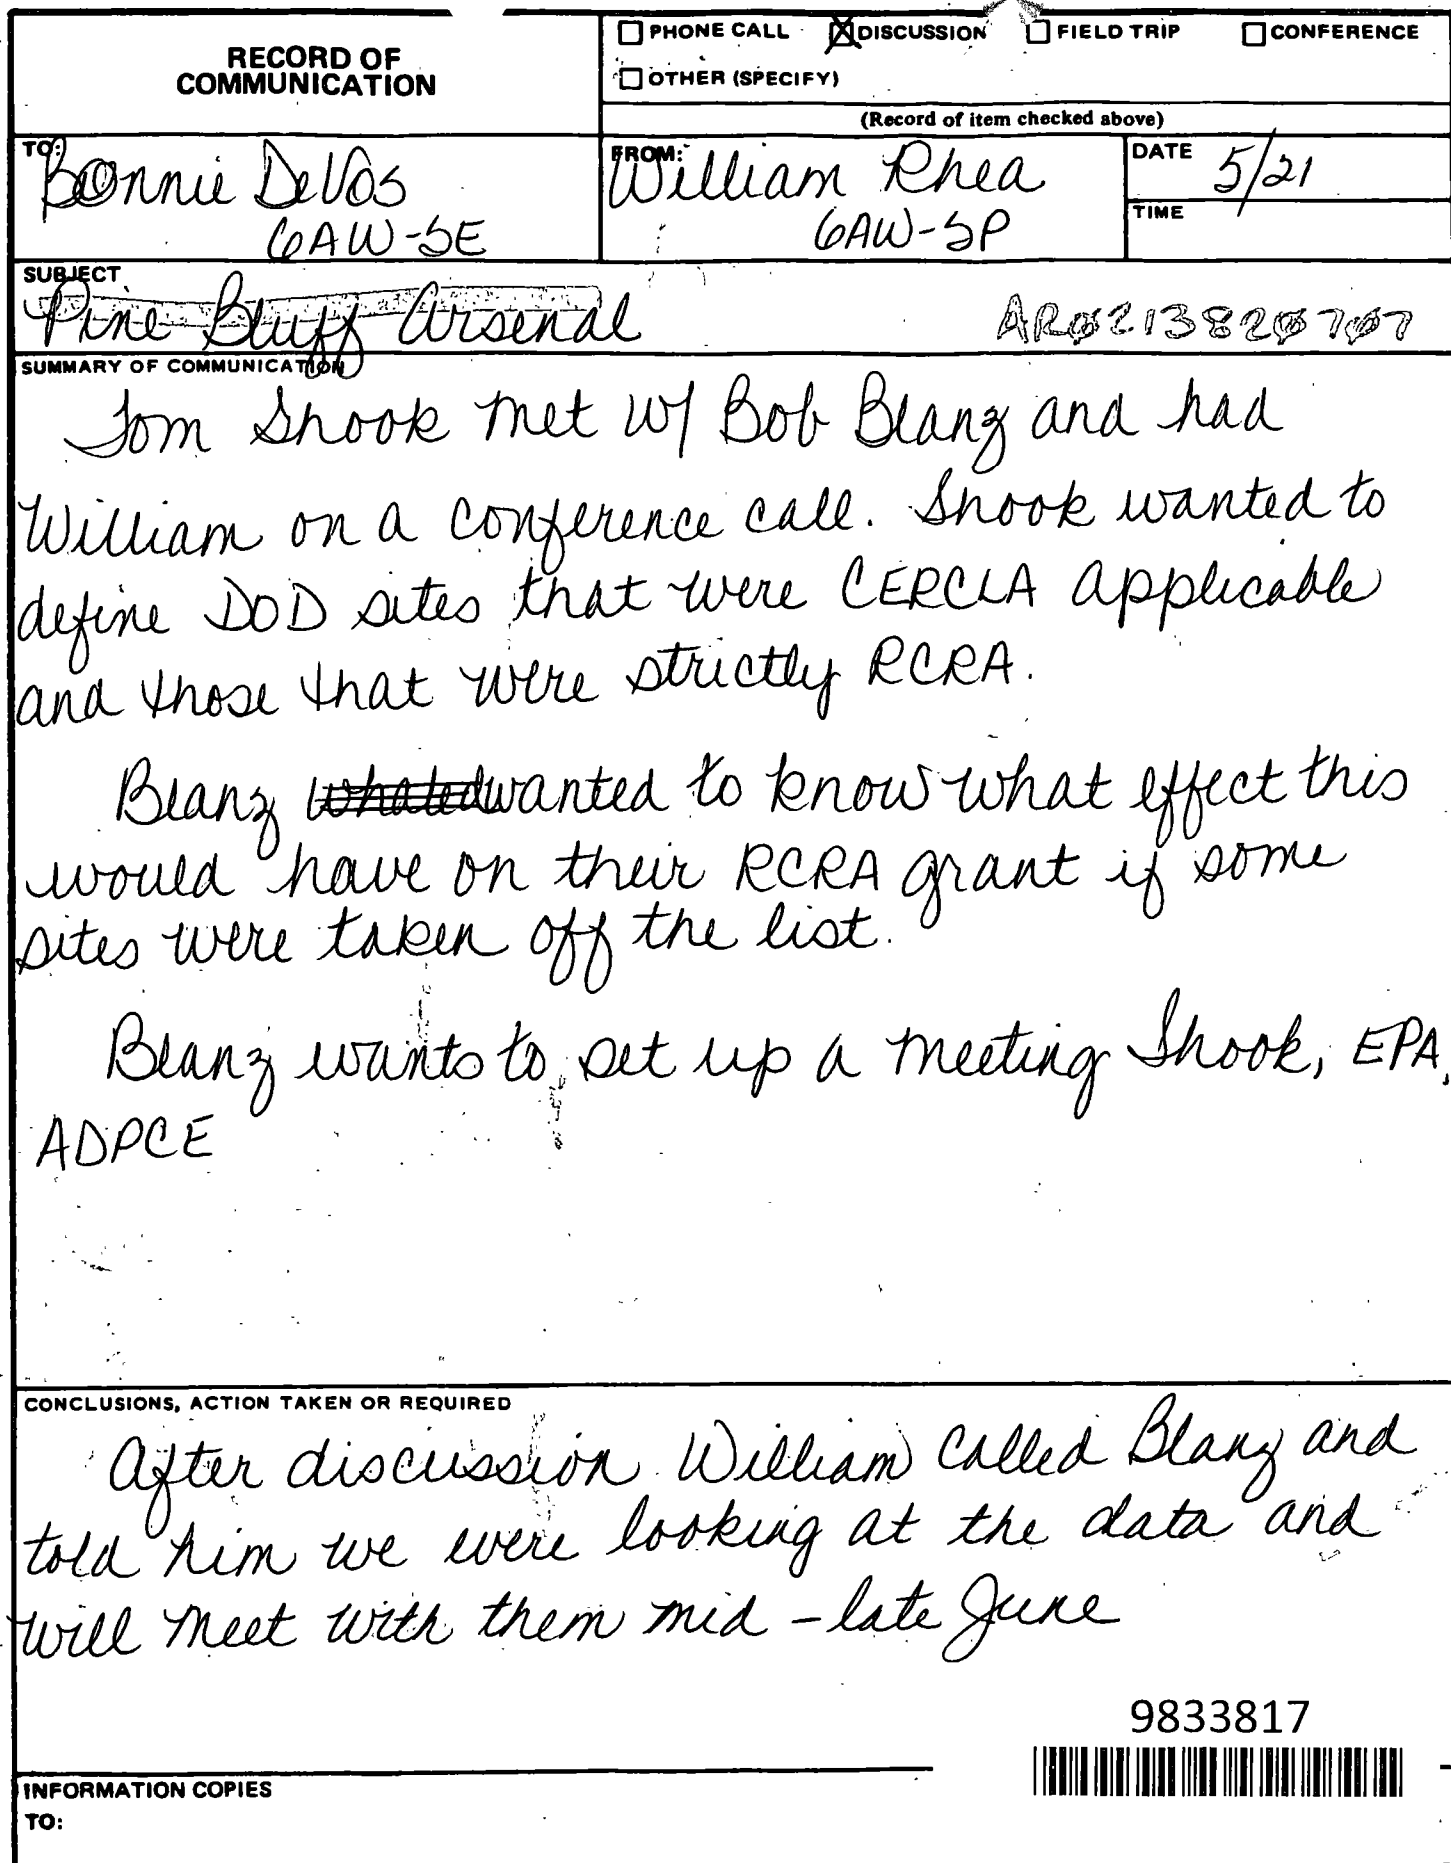 RECORD OF
COMMUNICATION
☐ PHONE CALL ☒ DISCUSSION ☐ FIELD TRIP ☐ CONFERENCE
☐ OTHER (SPECIFY)
(Record of item checked above)
TO: Bonnie DeVos
6AW-SE
FROM: William Rhea
6AW-SP
DATE 5/21
TIME
SUBJECT
Pine Bluff Arsenal AR0213820707
SUMMARY OF COMMUNICATION
Tom Shook met w/ Bob Blanz and had
William on a conference call. Shook wanted to
define DOD sites that were CERCLA applicable
and those that were strictly RCRA.
Blanz wanted to know what effect this
would have on their RCRA grant if some
sites were taken off the list.
Blanz wants to set up a meeting Shook, EPA,
ADPCE
CONCLUSIONS, ACTION TAKEN OR REQUIRED
After discussion William called Blanz and
told him we were looking at the data and
will meet with them mid-late June
9833817
INFORMATION COPIES
TO: